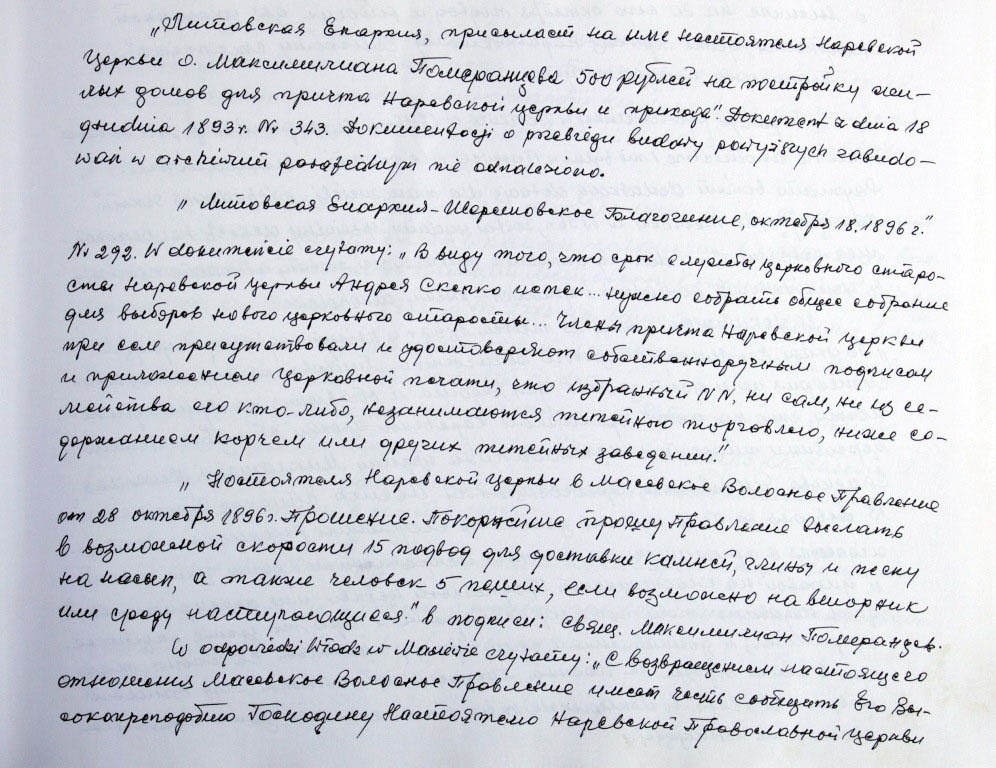 „Литовская Епархия, присылает на имя настоятеля Наревской
Церкви о. Максимилиана Померанцева 500 рублей на постройку жи-
лых домов для причта Наревской церкви и прихода". Dokument z dnia 18
grudnia 1893 r. Nr 343. Dokumentacji o przebiegu budowy powyższych zabudo-
wań w archiwum parafialnym nie odnaleziono.
„Литовская Епархия-Шерешовское Благочиние, октября 18. 1896 г."
Nr 292. W dokumencie czytamy: „В виду того, что срок службы церковного старо-
сты Наревской Церкви Андрея Скепко истек... нужно собрать общее собрание
для выборов нового церковного старосты... Члены причта Наревской церкви
при сем присутствовали и удостоверяют собственноручным подписом
и приложением Церковной печати, что избранный N N, ни сам, ни из се-
мейства его кто-либо, незанимаются питейного торговлею, ниже со-
держанием корчем или других питейных заведений."
„Настоятеля Наревской Церкви в Масевское Волосное Правление
от 28 октября 1896 г. Прошение. Покорнейше прошу Правление выслать
в возможной скорости 15 подвод для доставки камней, глины и песку
на насып, а также человек 5 пеших, если возможно на вторник
или среду наступающися." в подписи: свящ. Максимилиан Померанцев.
W odpowiedzi Władz w Masiewie czytamy: „С возвращением настоящего
отношения Масевское Волосное Правление имеет честь сообщить Его Вы-
сокопреподобию Господину Настоятелю Наревской Православной Церкви